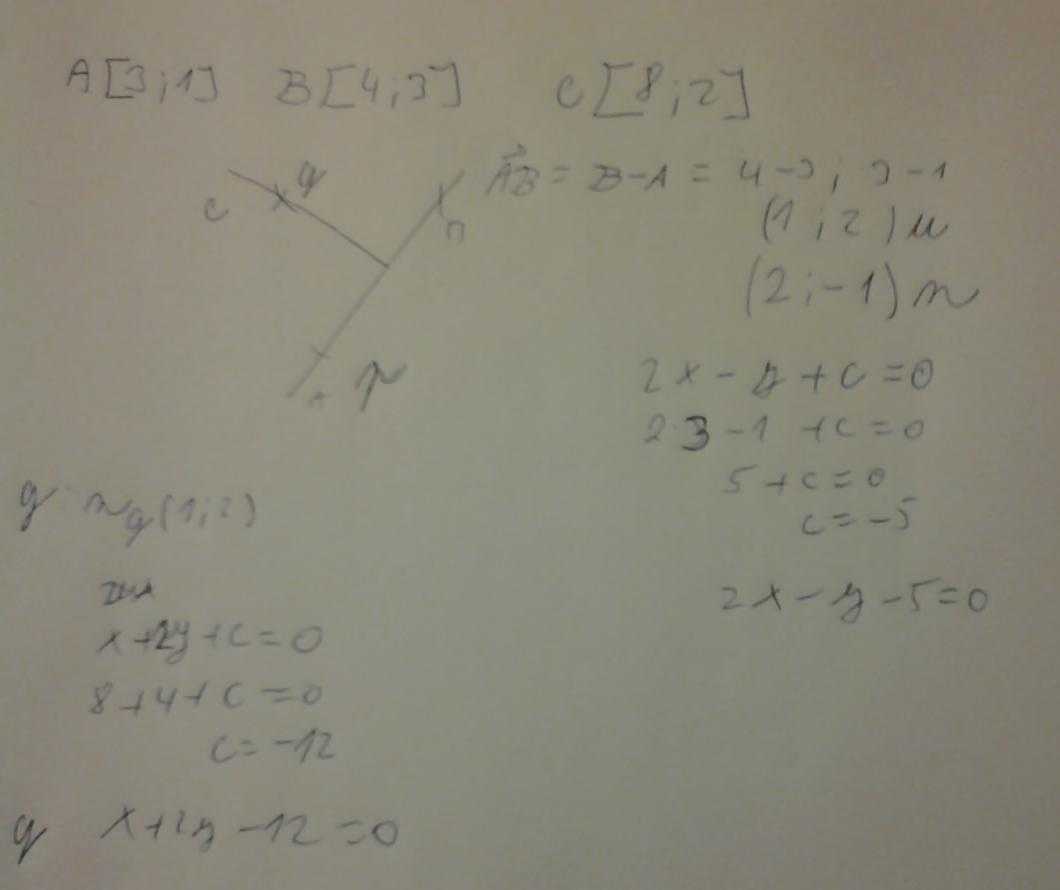 A[3;1] B[4;3] C[8;2]
AB = B-A = 4-3; 3-1
(1;2) u
(2;-1) n
C q
B
A p
2x - y + c = 0
2·3 - 1 + c = 0
5 + c = 0
c = -5
2x - y - 5 = 0
q: n_q(1;2)
x + 2y + c = 0
8 + 4 + c = 0
c = -12
q x + 2y - 12 = 0